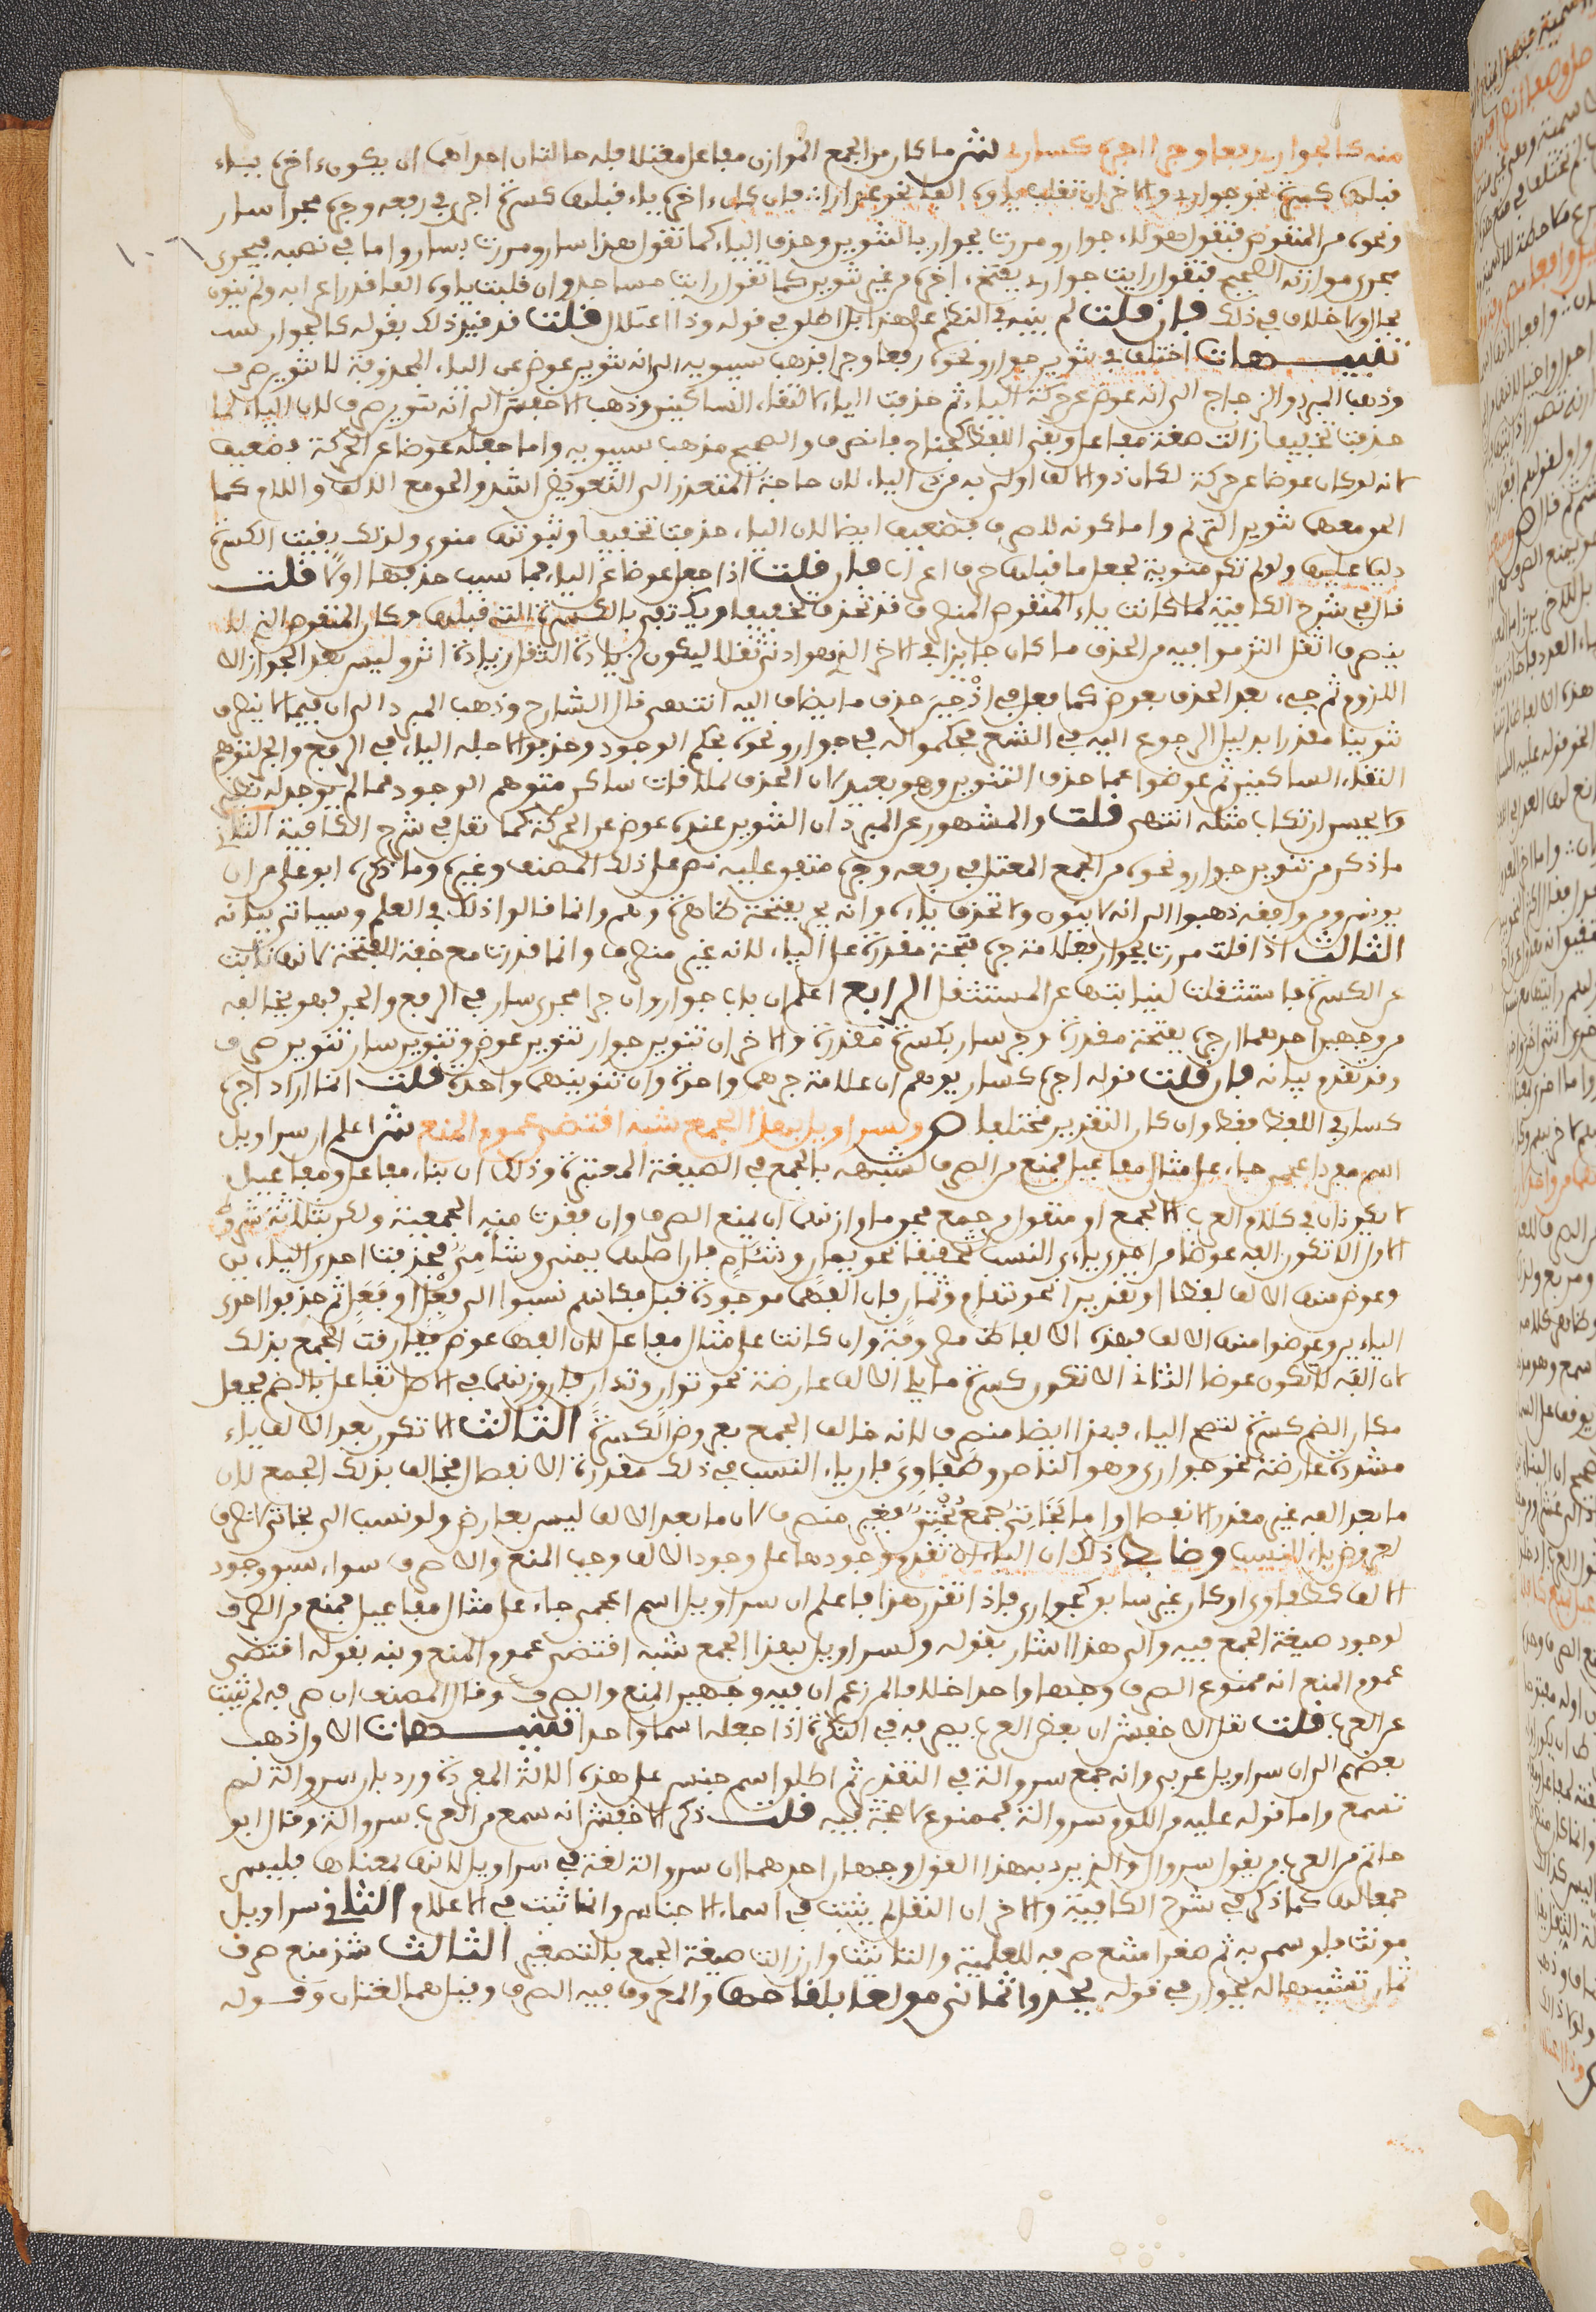 منه كالجواري رفعا وجرا اجره كساري ش ما كان من الجمع الموازن مفاعل معتلا فله حالتان احداهما ان يكون ءاخره ياء
قبلها كسرة نحو جواري والاخرى ان تقلب ياوه الفا نحو عذارا فان كان ءاخره ياء قبلها كسرة اجري في رفعه وجره مجرا سار
ونحوه من المنقوص فتقول هولاء جوار ومررت بجوار بالتنوين وحذف الياء كما تقول هذا سار ومررت بسار واما في نصبه فيجرى
مجرى موازنه الصحيح فتقول رايت جواري بفتح ءاخره من غير تنوين كما تقول رايت مساجد وان قلبت ياوه الفا قدر اعرابه ولم ينون
بحال ولا خلاف في ذلك فان قلت لم ينبه في النظم على هذا بل اطلق في قوله وذا اعتلال قلت قد قيد ذلك بقوله كالجوار
تنبيهات اختلف في تنوين جوار ونحوه رفعا وجرا فذهب سيبويه الى انه تنوين عوض عن الياء المحذوفة لا تنوين صرف
وذهب المبرد والزجاج الى انه عوض عن حركة الياء ثم حذفت الياء لالتقاء الساكنين وذهب الاخفش الى انه تنوين صرف لان الياء لما
حذفت تخفيفا زالت صيغة مفاعل وبقي اللفظ كجناح فانصرف والصحيح مذهب سيبويه واما جعله عوضا عن الحركة فضعيف
لانه لو كان عوضا عن حركة لكان ذو الالف اولى به من ذي الياء لان حاجة المتعذر الى التعويض اشد ولالحق مع الالف واللام كما
الحق معهما تنوين الترنم واما كونه للصرف فضعيف ايضا لان الياء حذفت تخفيفا وثبوتها منوي ولذلك بقيت الكسرة
دليلا عليها ولو لم تكن منوية لجعل ما قبلها حرف اعراب فان قلت اذا جعل عوضا عن الياء فما سبب حذفها اولا قلت
قال في شرح الكافية لما كانت ياء المنقوص المنصرف قد تحذف تخفيفا ويكتفى بالكسرة التي قبلها وكان المنقوص الذي لا
ينصرف اثقل التزموا فيه من الحذف ما كان جايزا في الاخر الذي هو ادنى ثقلا ليكون لزيادة الثقل زيادة اثر وليس بعد الجواز الا
اللزوم ثم جيء بعد الحذف بعوض كما فعل في اذ حين حذف ما يضاف اليه انتهى قال الشارح وذهب المبرد الى ان فيما لا ينصرف
تنوينا مقدرا بدليل الرجوع اليه في الشعر فحكموا له في جوار ونحوه بحكم الوجود وحذفوا لاجله الياء في الرفع والجر لتوهم
التقاء الساكنين ثم عوضوا عما حذف التنوين وهو بعيد لان الحذف لملاقات ساكن متوهم الوجود مما لم يوجد له نظير
ولا يحسن ارتكاب مثله انتهى قلت والمشهور عن المبرد ان التنوين عنده عوض عن الحركة كما نقل في شرح الكافية الثاني
ما ذكر من تنوين جوار ونحوه من الجمع المعتل في رفعه وجره متفق عليه نص على ذلك المصنف وغيره وما ذكره ابو علي من ان
يونس ومن وافقه ذهبوا الى انه لا ينون ولا تحذف ياءه وانه يجر بفتحة ظاهرة وهم وانما قالوا ذلك في العلم وسياتي بيانه
الثالث اذا قلت مررت بجوار فعلامة جره فتحة مقدرة على الياء لانه غير منصرف وانما قدرت مع خفة الفتحة لانها نابت
عن الكسرة فاستثقلت لنيابتها عن المستثقل الرابع اعلم ان باب جوار وان جرا مجرى سار في الرفع والجر فهو يخالفه
من وجهين احدهما ان جره بفتحة مقدرة وجر سار بكسرة مقدرة والاخر ان تنوين جوار تنوين عوض وتنوين سار تنوين صرف
وقد تقدم بيانه فان قلت قوله اجره كساري يوهم ان علامة جرهما واحدة وان تنوينهما واحد قلت انما اراد اجره
كساري في اللفظ فقط وان كان التقدير مختلفا ص ولسراويل بهذا الجمع شبه اقتضى عموم المنع ش اعلم ان سراويل
اسم مفرد اعجمي جاء على مثال مفاعيل فمنع من الصرف لشبهه بالجمع في الصيغة المعتبرة وذلك ان بناء مفاعل ومفاعيل
لا يكونان في كلام العرب الا لجمع او منقول من جمع فحق ما وازنهما ان يمنع الصرف وان فقدت منه الجمعية ولكن بثلاثة شروط
الاول الا تكون الفه عوضا من احدى ياءي النسب تحقيقا نحو يمان وشئام فان اصلهما يمني وشامي فحذفت احدى الياءين
وعوض منها الالف لفظا او تقديرا نحو تهام وثمان فان الفهما موجودة قبل فكانهم نسبوا الى فعل او فعل ثم حذفوا احدى
الياءين وعوضوا منها الالف فهذه الالفاظ مصروفة وان كانت على مثال مفاعل لان الفها عوض ففارقت الجمع بذلك
لان الفه لا تكون عوضا الثاني الا تكون كسرة ما يلي الالف عارضة نحو توار وتدار فان وزنهما في الاصل تفاعل بالضم فجعل
مكان الضم كسرة لتصح الياء فهذا ايضا منصرف لانه خالف الجمع بعروض الكسرة الثالث الا تكون بعد الالف ياء
مشددة عارضة نحو جواري وهو الناصر وظفاري فان ياء النسب في ذلك مقدرة الانفصال فخالف بذلك الجمع لان
ما بعد الفه غير مقدر الانفصال واما بخاتي جمع بختي فغير منصرف لان ما بعد الالف ليس بعارض ولو نسب الى بخاتي لانصرف
لعروض ياء النسب وضابط ذلك ان الياء ان تقدم وجودها على وجود الالف وجب المنع والا صرف سواء سبق وجود
الالف كظفاري او كان غير سابق كجواري فاذا تقرر هذا فاعلم ان سراويل اسم اعجمي جاء على مثال مفاعيل فمنع من الصرف
لوجود صيغة الجمع فيه والى هذا اشار بقوله ولسراويل بهذا الجمع شبه اقتضى عموم المنع ونبه بقوله اقتضى
عموم المنع انه ممنوع الصرف وجها واحدا خلافا لمن زعم ان فيه وجهين المنع والصرف وقال المصنف ان صرفه لم يثبت
عن العرب قلت نقل الاخفش ان بعض العرب يصرفه في النكرة اذا جعله اسما واحدا تنبيهات الاول ذهب
بعضهم الى ان سراويل عربي وانه جمع سروالة في التقدير ثم اطلق اسم جنس على هذه الالة المفردة ورد بان سروالة لم
تسمع واما قوله عليه من اللوم سروالة فمصنوع لا حجة فيه قلت ذكر الاخفش انه سمع من العرب سروالة وقال ابو
حاتم من العرب من يقول سروال والذي يرد به هذا القول وجهان احدهما ان سروالة لغة في سراويل لانها بمعناها فليس
جمعا لها كما ذكر في شرح الكافية والاخر ان النقل لم يثبت في اسماء الاجناس وانما ثبت في الاعلام الثاني سراويل
مونث فلو سمي به ثم صغر امتنع صرفه للعلمية والتانيث وان زالت صيغة الجمع بالتصغير الثالث شذ منع صرف
ثمان تشبيها له بجوار في قوله يحدوا ثماني مولعا بلقاحها والمعروف فيه الصرف وقيل هما لغتان وقوله